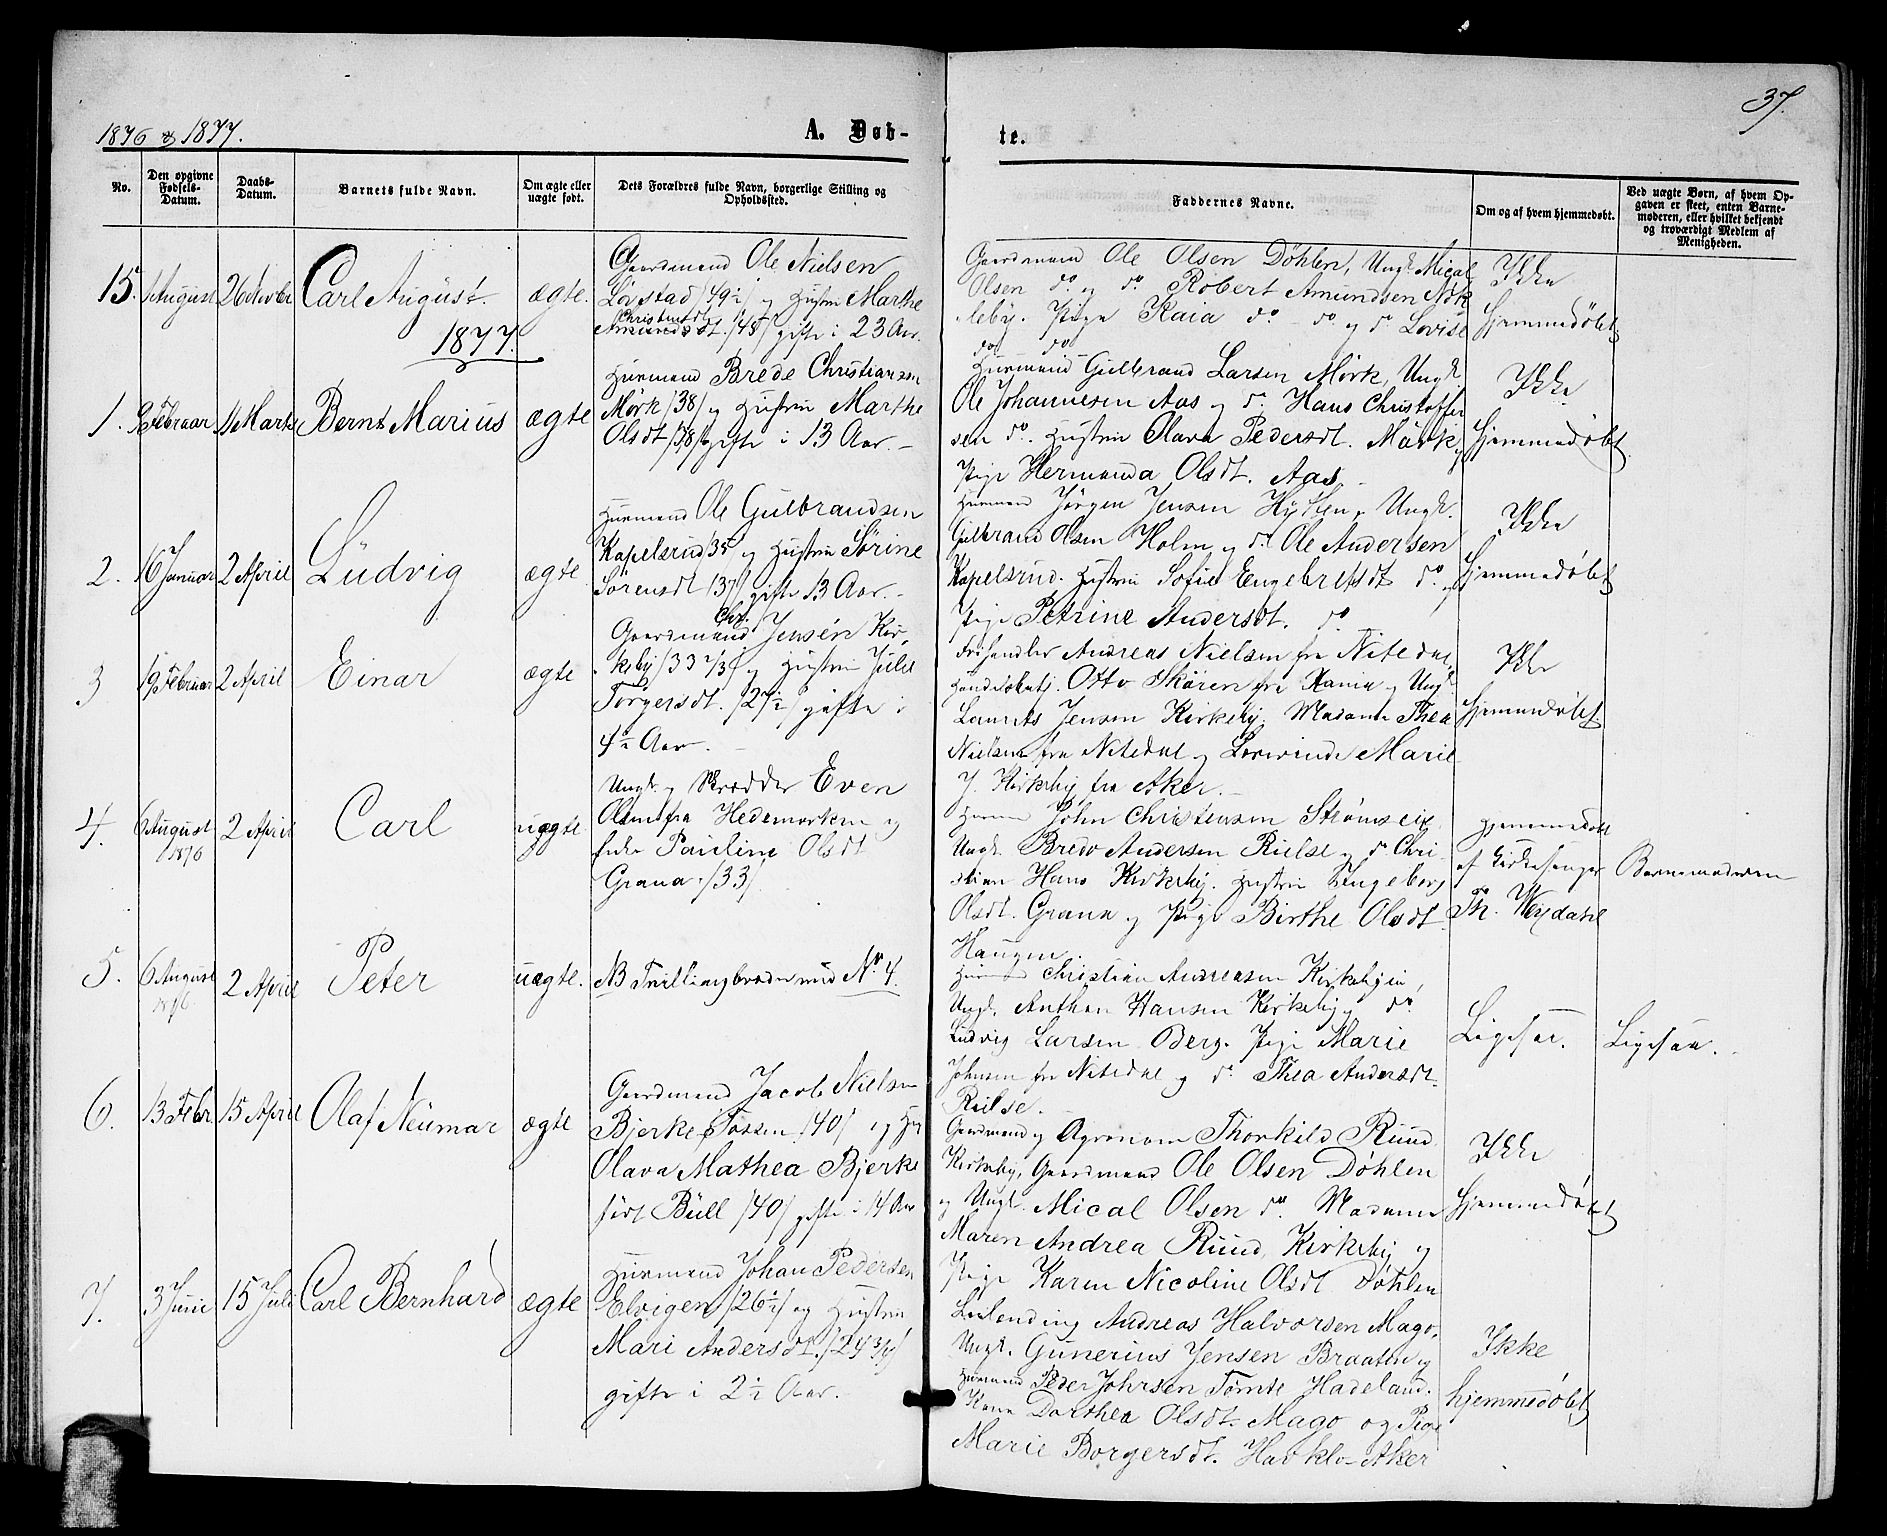 37.
1876 & 1877.
A. Døb-
te.
No.
Den opgivne Fødsels-Datum.
Daabs-Datum.
Barnets fulde Navn.
Om ægte eller uægte født.
Dets Forældres fulde Navn, borgerlige Stilling og Opholdssted.
Faddernes Navne.
Om og af hvem hjemmedøbt.
Ved uægte Børn, af hvem Op-
gaven er skeet, enten Barne-
moderen, eller hvilket bekjendt
og troværdigt Medlem af
Menigheden.
15. August 26 Novber Carl August. ægte.
Gaardmand Ole Nielsen
Løvstad /49½/ og Hustru Marthe
Christensdt.
Amundsdt. /48/ gifte i 23 Aar.
Gaardmand Ole Olsen Døhlen, Ungk. Mical
Olsen do. og do. Robert Amundsen
Pige Kaia do. do. og do. Lovise
do. do.
Ikke
hjemmedøbt
1877.
1. Februar Marts Bernt Marius ægte
Husmand Brede Christiansen
Mørk /38/ og Hustru Marthe
Olsdt /38/ gifte i 13 Aar. -
Husmand Gulbrand Larsen Mørk, Ungk.
Ole Johannesen Aas og do. Hans Christoffer
sen do. Hustru Olava Pedersdt. Mørk og
Pige Hermanda Olsdt. Aas.
Ikke
hjemmedøbt.
2. 16 Januar 2 April Ludvig ægte
Husmand Ole Gulbrandsen
Kapelsrud 35 og Hustru Sørine
Sørensdt /37/ gifte 13 Aar. -
Husmand Jørgen Jensen Hytten, Ungk.
Gulbrand Olsen Holm og do. Ole Andersen
Kapelsrud. Hustru Sofie Engebretsdt do. og
Pige Petrine Andersdt. do.
Ikke
hjemmedøbt
3 19 Februar 2 April Einar ægte
Chr.
Gaardmand Jensen Kir-
keby /33 og Hustru Julie
Torgersdt. /27½/ gifte i
4½ Aar. -
Andreas Nielsen fra Nitedal,
Otto Skøren fra Xania og Ungk.
Laurits Jensen Kirkeby. Madame Thea
Nielsen fra Nitedal og Marie
J. Kirkeby fra Aker. -
Ikke
hjemmedøbt
4. 6 August 1876 2 April Carl uægte
Ungk. og Skrædder Even
Olsen fra Hedemarken og
Pauline Olsdt
Grana. /33/
John Christensen
Ungk. Bredo Andersen Rielse og do. Chri-
stian Hans Kirkeby. Hustru Ingeborg
Olsdt. Grana og Pige Birthe Olsdt.
Haugen.
Hjemmedøbt
af Kirkesanger
Th. Weydahl
Barnemoderen
5. 6 August 1876 2 April Peter uægte.
NB Tvillingbroder med No. 4.
Christian Andreasen Kirkebyeie,
Ungk. Anthon Hansen Kirkeby og do.
Ludvig Larsen Berg. Pige Marie
Johnsen fra Nitedal og do. Thea Andersdt.
Rielse. -
Ligesaa.
Ligesaa.
6. 13 Febr. 15 April Olaf Neumar ægte
Gaardmand Jacob Nielsen
Bjerke, Fossen /40/ og Hu
Olava Mathea Bjerke
født Bull /40/ gifte i 14 Aar
Gaardmand og Agronom Thorkild Ruud
Kirkeby, Gaardmand Ole Olsen Døhlen
og Ungk. Mical Olsen do. Madame
Maren Andrea Ruud, Kirkeby og
Pige Karen Nicoline Olsdt Døhlen
Ikke
hjemmedøbt
7. 3 Juni 15 Juli Carl Bernhard ægte
Husmand Johan Pedersen
Elvigen /26½/ og Hustru
Mari Andersdt. /24 3/4/
gifte i 2½ Aar.
Leilending Andreas Halvorsen Mago,
Ungk. Gunerius Jensen Braaten og
Husmand Peder Johrsen Tømte Hadeland.
Kone Dorthea Olsdt. Mago og Pige
Marie Borgersdt. Havklo - Aker
Ikke
hjemmedøbt